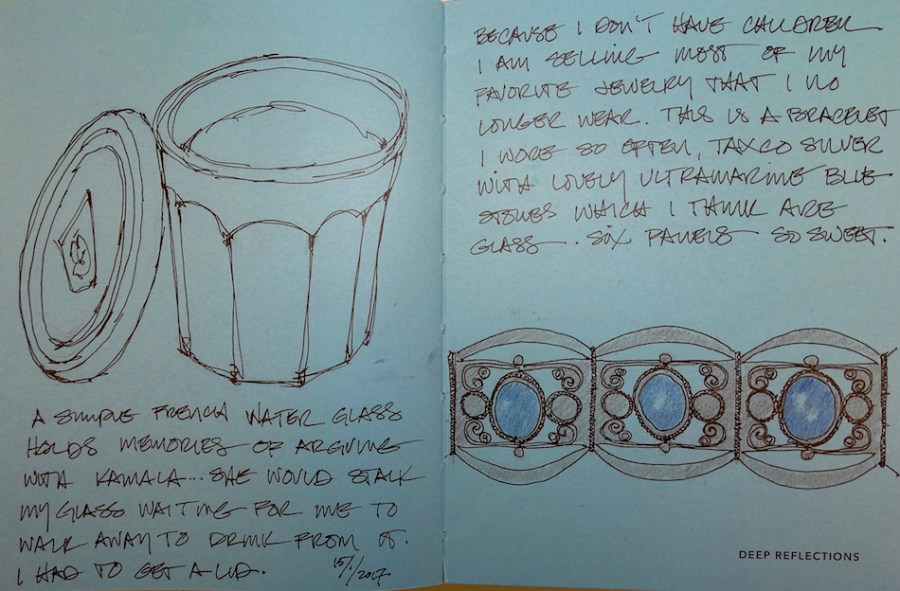 A SIMPLE FRENCH WATER GLASS
HOLDS MEMORIES OF ARGUING
WITH KAMALA... SHE WOULD STALK
MY GLASS WAITING FOR ME TO
WALK AWAY TO DRINK FROM IT.
I HAD TO GET A LID.
BECAUSE I DON'T HAVE CHILDREN
I AM SELLING MOST OF MY
FAVORITE JEWELRY THAT I NO
LONGER WEAR. THIS IS A BRACELET
I WORE SO OFTEN, TAXCO SILVER
WITH LOVELY ULTRAMARINE BLUE
STONES WHICH I THINK ARE
GLASS. SIX PANELS SO SWEET.
DEEP REFLECTIONS